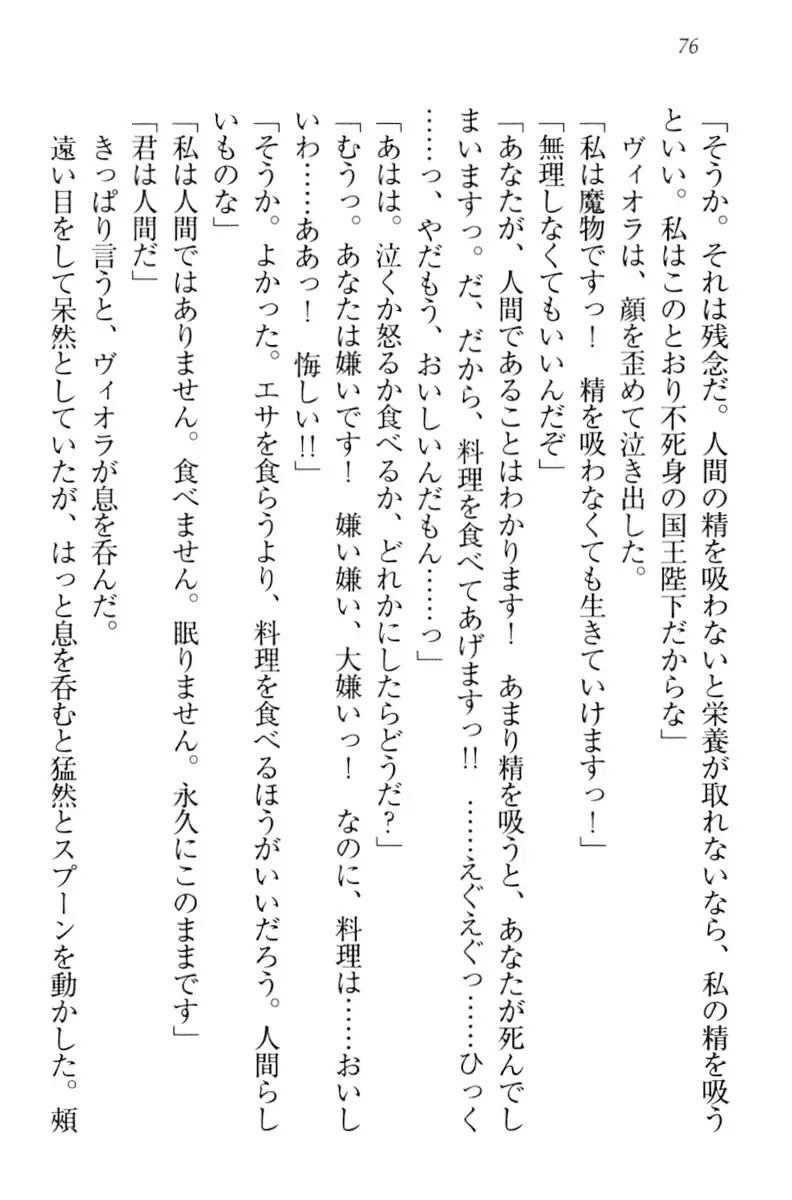 76
「そうか。それは残念だ。人間の精を吸わないと栄養が取れないなら、私の精を吸う
といい。私はこのとおり不死身の国王陛下だからな」
ヴィオラは、顔を歪めて泣き出した。
「私は魔物ですっ！　精を吸わなくても生きていけますっ！」
「無理しなくてもいいんだぞ」
「あなたが、人間であることはわかります！　あまり精を吸うと、あなたが死んでし
まいますっ。だ、だから、料理を食べてあげますっ!!　……えぐえぐっ……ひっく
……っ、やだもう、おいしいんだもん……っ」
「あはは。泣くか怒るか食べるか、どれかにしたらどうだ？」
「むうっ。あなたは嫌いです！　嫌い嫌い、大嫌いっ！　なのに、料理は……おいし
いわ……ああっ！　悔しい!!」
「そうか。よかった。エサを食らうより、料理を食べるほうがいいだろう。人間らし
いものな」
「私は人間ではありません。食べません。眠りません。永久にこのままです」
「君は人間だ」
きっぱり言うと、ヴィオラが息を呑んだ。
遠い目をして呆然としていたが、はっと息を呑むと猛然とスプーンを動かした。頬